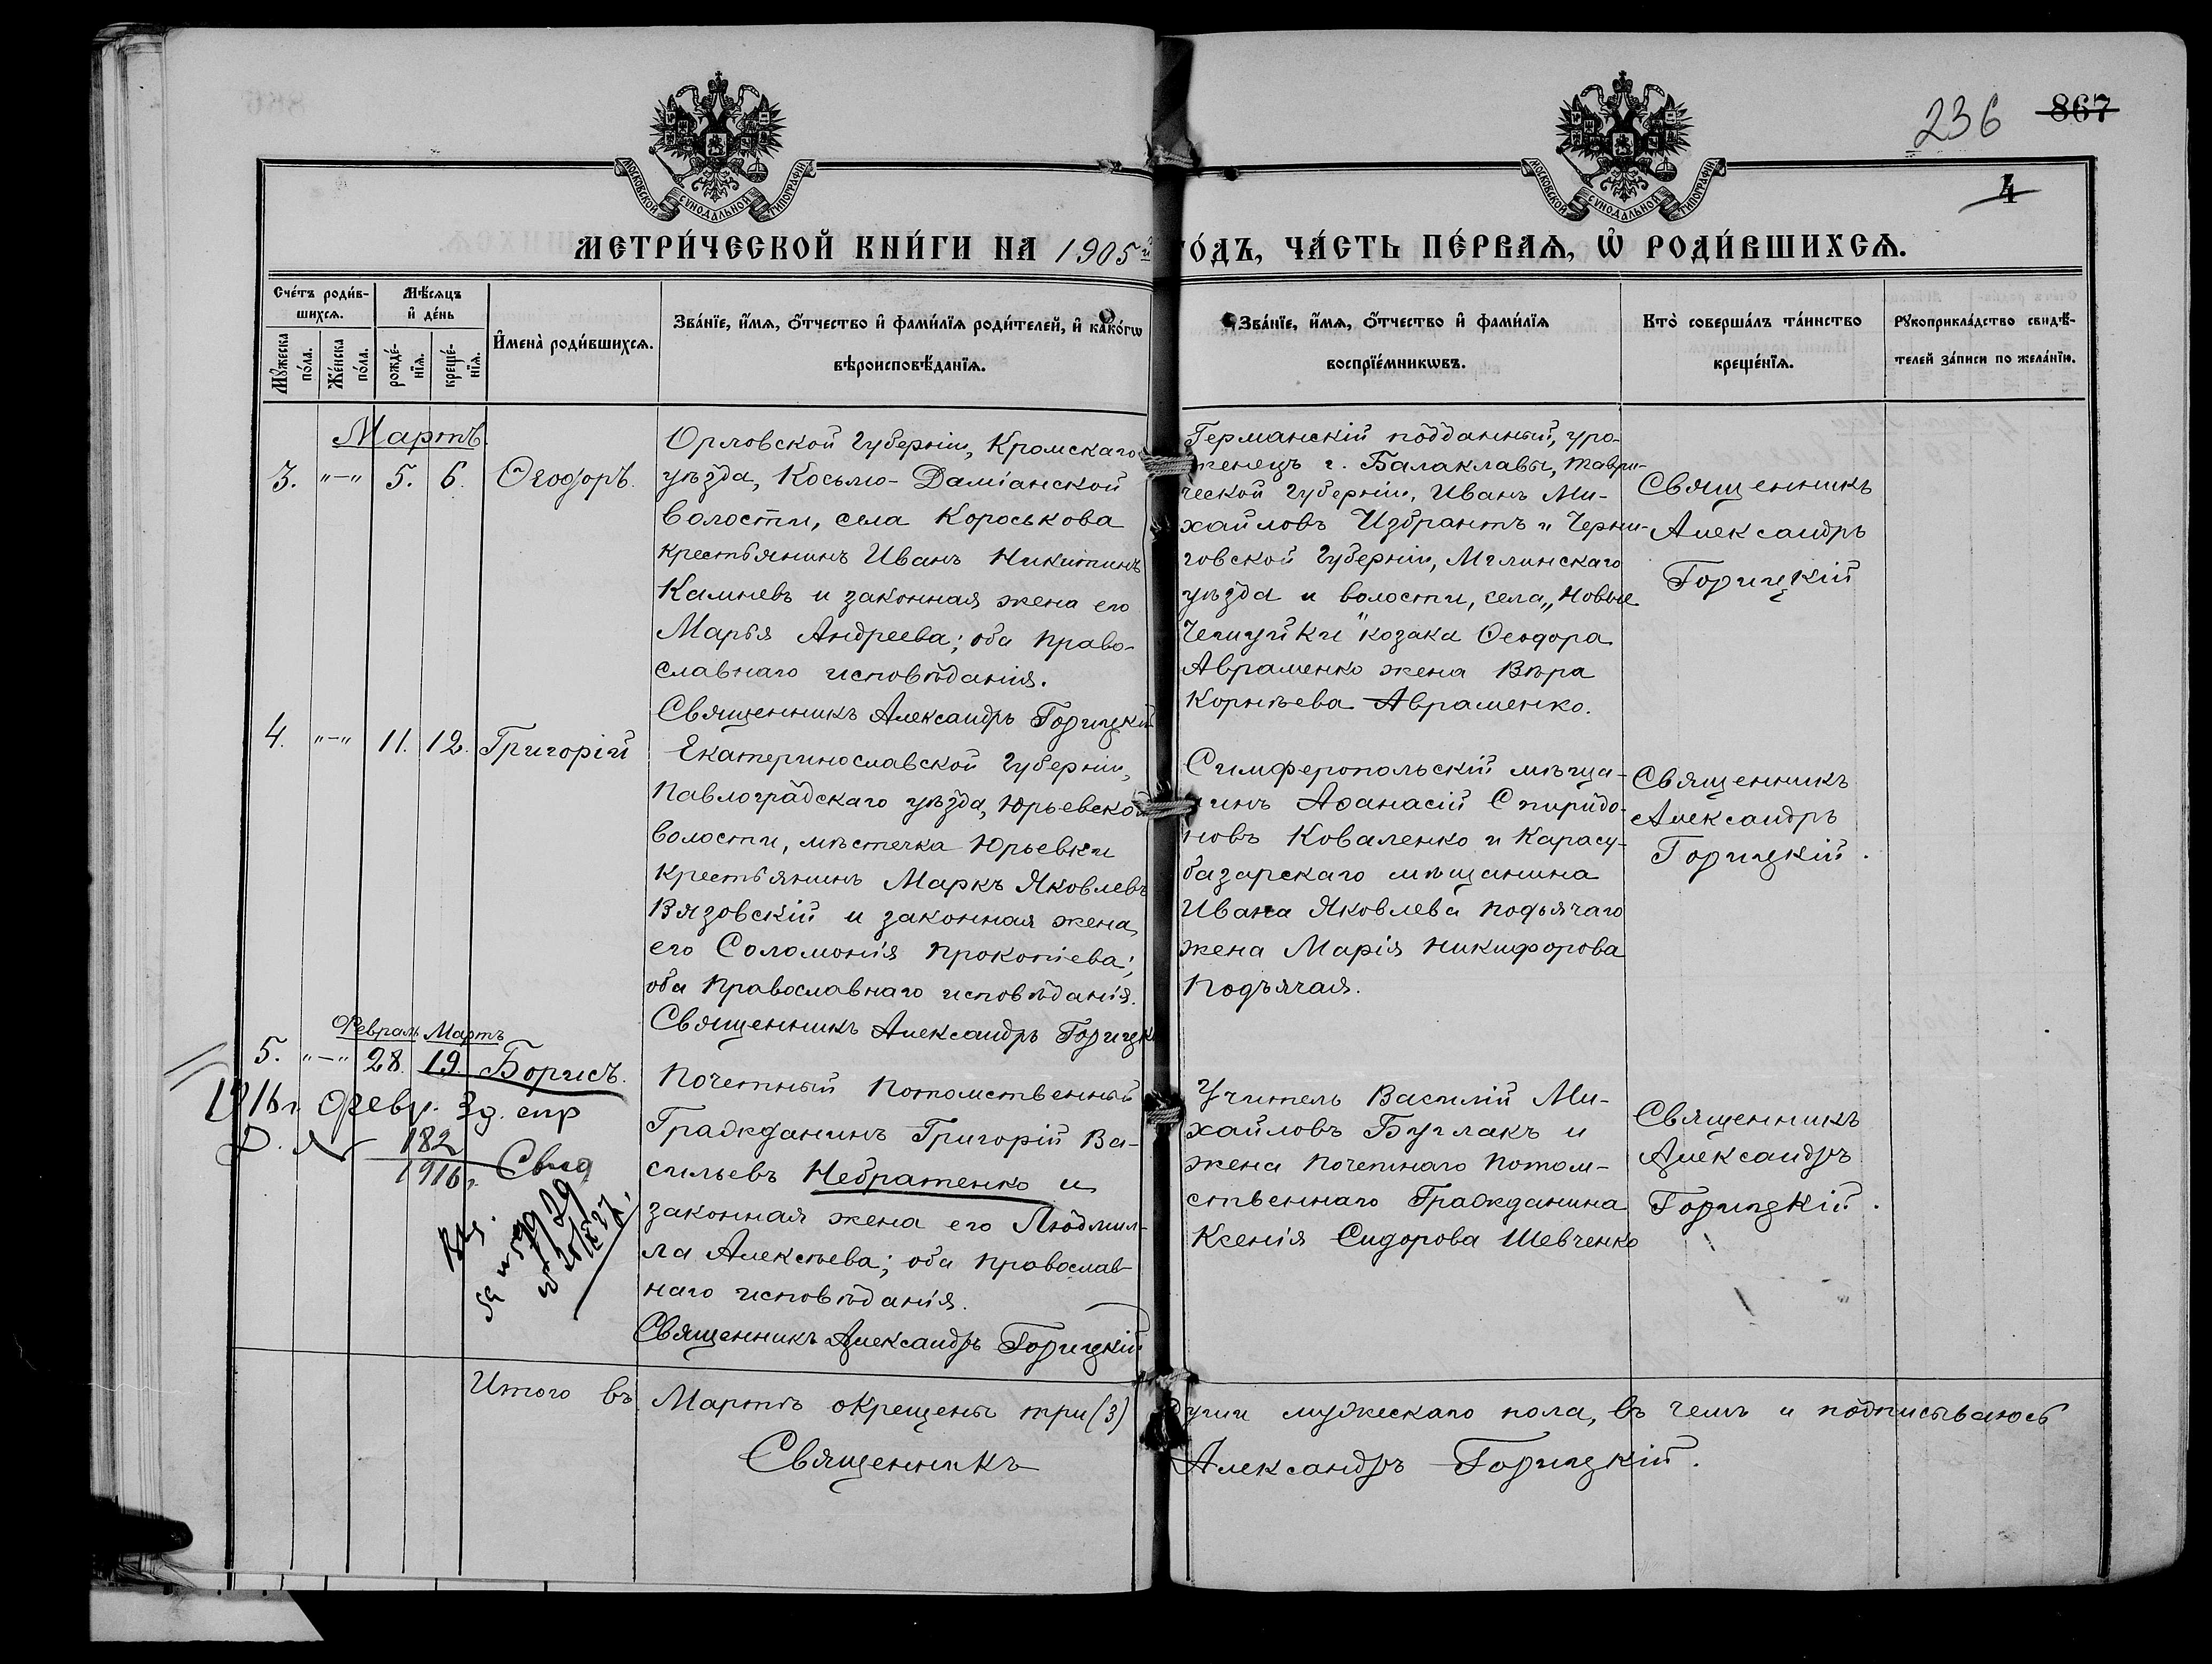 236 867
4
МОСКОВСКОЙ СУНОДАЛЬНОЙ ТИПОГРАФІИ
МОСКОВСКОЙ СУНОДАЛЬНОЙ ТИПОГРАФІИ
МЕТРИ́ЧЕСКОЙ КНИ́ГИ НА 1905й
ГО́ДЪ, ЧА́СТЬ ПЕ́РВАѦ, Ѡ҆ РОДИ́ВШИХСѦ.
Сче́тъ роди́в-
шихсѧ.
Мꙋ́жеска по́ла.
Же́нска по́ла.
Мѣ́сѧцъ
и҆ де́нь
рожде́-
нїѧ.
креще́-
нїѧ.
И҆мена̀ роди́вшихсѧ.
Зва́нїе, и҆́мѧ, ѻ҆́тчество и҆ фами́лїѧ роди́телей, и҆ како́гѡ
вѣроисповѣ́данїѧ.
Зва́нїе, и҆́мѧ, ѻ҆́тчество и҆ фами́лїѧ
воспрїе́мникѡвъ.
Кто̀ соверша́лъ та́инство
креще́нїѧ.
Рꙋкоприкла́дство свидѣ́-
телей за́писи по жела́нїю.
Мартъ.
3. "–" 5. 6. Ѳеодоръ.
Орловской губерніи, Кромскаго
уѣзда, Косьмо-Даміанской
волости, села Короськова
крестьянинъ Иванъ Никитинъ
Камневъ и законная жена его
Марья Андреева; оба право-
славнаго исповѣданія.
Священникъ Александръ Горицкій
Германскій подданный, уро-
женецъ г. Балаклавы, Таври-
ческой губерніи, Иванъ Ми-
хайловъ Избрантъ и Черни-
говской губерніи, Мглинскаго
уѣзда и волости, села „Новые
Чешуйки" козака Ѳеодора
Авраменко жена Вѣра
Корнѣева Авраменко.
Священникъ
Александръ
Горицкій
4. "–" 11. 12. Григорій
Екатеринославской губерніи,
Павлоградскаго уѣзда, Юрьевской
волости, мѣстечка Юрьевки
крестьянинъ Маркъ Яковлевъ
Вязовскій и законная жена
его Соломонія Прокопіева;
оба православнаго исповѣданія.
Священникъ Александръ Горицкій
Симферопольскій мѣща-
нинъ Аѳанасій Спиридо-
новъ Коваленко и Карасу-
базарскаго мѣщанина
Ивана Яковлева Подьячаго
жена Марія Никифорова
Подъячая.
Священникъ
Александръ
Горицкій.
Февраль Мартъ
5. "–" 28. 19. Борисъ.
1916 г. Февр.
182
1916 г.
Почетный Потомственный
Гражданинъ Григорій Ва-
сильевъ Небратенко и
законная жена его Людмил-
ла Алексѣева; оба православ-
наго исповѣданія.
Священникъ Александръ Горицкій
Учитель Василій Ми-
хайловъ Буглакъ и
жена Почетнаго Потом-
ственнаго Гражданина
Ксенія Сидорова Шевченко
Священникъ
Александръ
Горицкій.
Итого въ Мартѣ окрещены три (3) души мужескаго пола, въ чемъ и подписываюсь
Священникъ Александръ Горицкій.